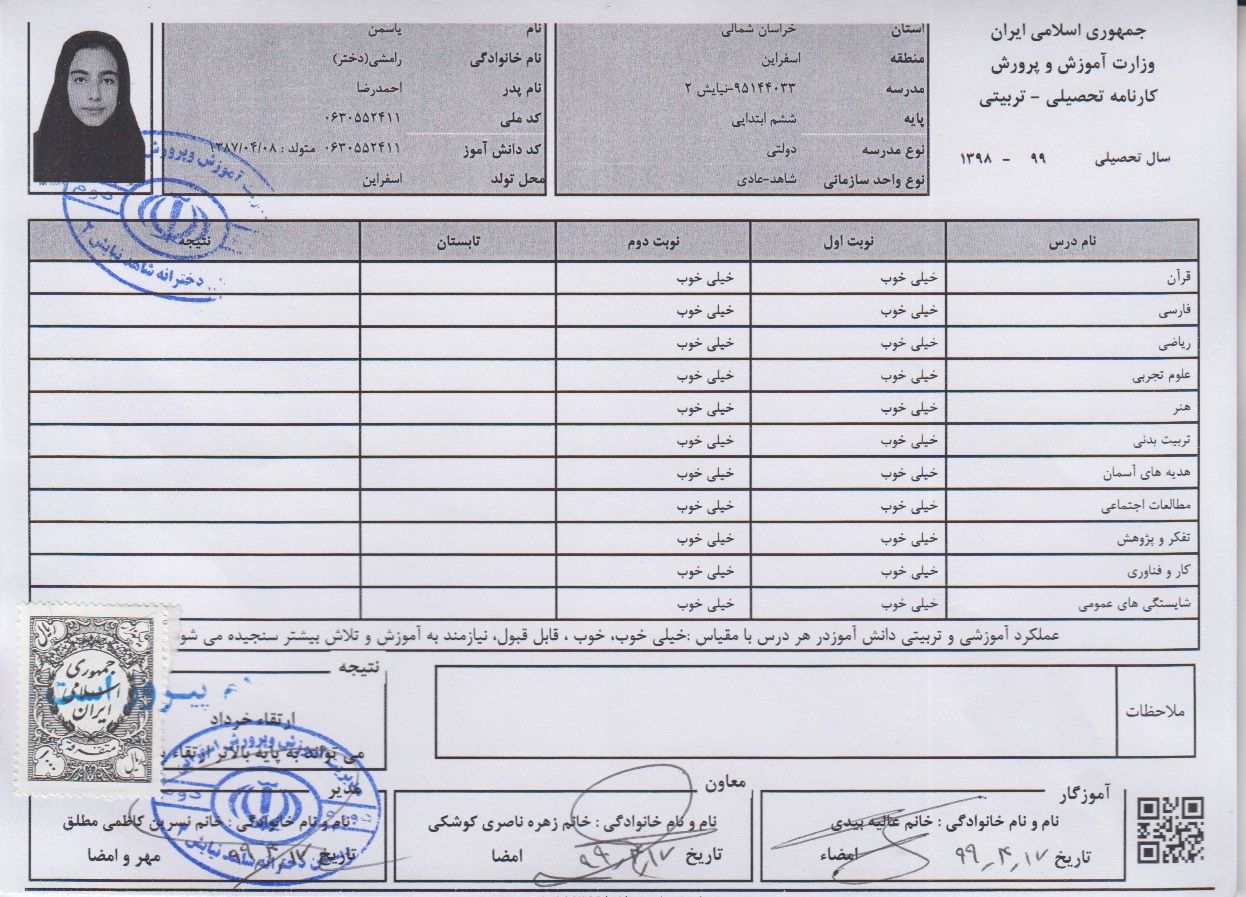 جمهوری اسلامی ایران
وزارت آموزش و پرورش
کارنامه تحصیلی - تربیتی
سال تحصیلی ۹۹ - ۱۳۹۸
استان خراسان شمالی
منطقه اسفراین
مدرسه ۹۵۱۴۴۰۳۳-نیایش ۲
پایه ششم ابتدایی
نوع مدرسه دولتی
نوع واحد سازمانی شاهد-عادی
نام یاسمن
نام خانوادگی رامشی(دختر)
نام پدر احمدرضا
کد ملی ۰۶۳۰۵۵۲۴۱۱
کد دانش آموز ۰۶۳۰۵۵۲۴۱۱ متولد : ۱۳۸۷/۰۴/۰۸
محل تولد اسفراین
دخترانه شاهد نیایش ۲
نام درس نوبت اول نوبت دوم تابستان نتیجه
قرآن خیلی خوب خیلی خوب
فارسی خیلی خوب خیلی خوب
ریاضی خیلی خوب خیلی خوب
علوم تجربی خیلی خوب خیلی خوب
هنر خیلی خوب خیلی خوب
تربیت بدنی خیلی خوب خیلی خوب
هدیه های آسمان خیلی خوب خیلی خوب
مطالعات اجتماعی خیلی خوب خیلی خوب
تفکر و پژوهش خیلی خوب خیلی خوب
کار و فناوری خیلی خوب خیلی خوب
شایستگی های عمومی خیلی خوب خیلی خوب
عملکرد آموزشی و تربیتی دانش آموزدر هر درس با مقیاس :خیلی خوب، خوب ، قابل قبول، نیازمند به آموزش و تلاش بیشتر سنجیده می شود
ملاحظات
نتیجه
ارتقاء خرداد
می تواند به پایه بالاتر ارتقاء
جمهوری
اسلامی
ایران
متفرقه
ریال
آموزگار
نام و نام خانوادگی : خانم عالیه بیدی
تاریخ ۹۹_۴_۱۷ امضاء
معاون
نام و نام خانوادگی : خانم زهره ناصری کوشکی
تاریخ ۹۹_۴_۱۷ امضا
مدیر
نام و نام خانوادگی : خانم نسرین کاظمی مطلق
تاریخ ۹۹_۴_۱۷ مهر و امضا
دخترانه شاهد نیایش ۲